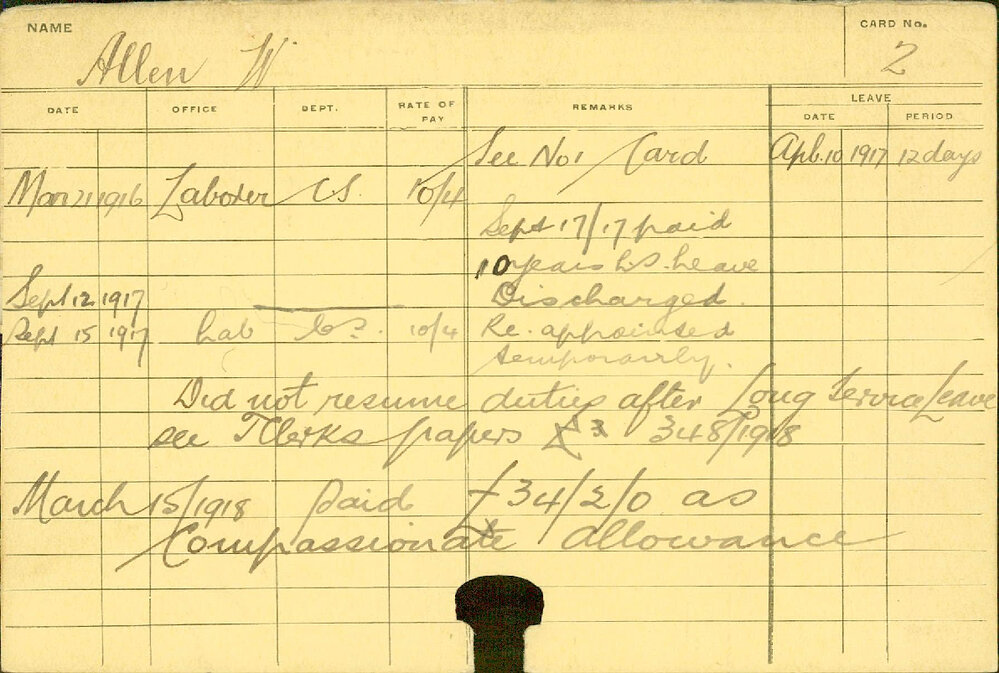 NAME
CARD No.
Allen W
2
DATE OFFICE DEPT. RATE OF PAY REMARKS LEAVE
DATE PERIOD
See No 1 Card Apl. 10 1917 12 days
Mar 21 1916 Laborer C.S. 10/4
Sept 17/17 paid
10 years L.S. Leave
Sept 12 1917 Discharged.
Sept 15 1917 Lab C.S. 10/4 Re. appointed
temporarily.
Did not resume duties after Long Service Leave
see T Clerks papers 348/1918
March 15/1918 paid £34/2/0 as
Compassionate allowance